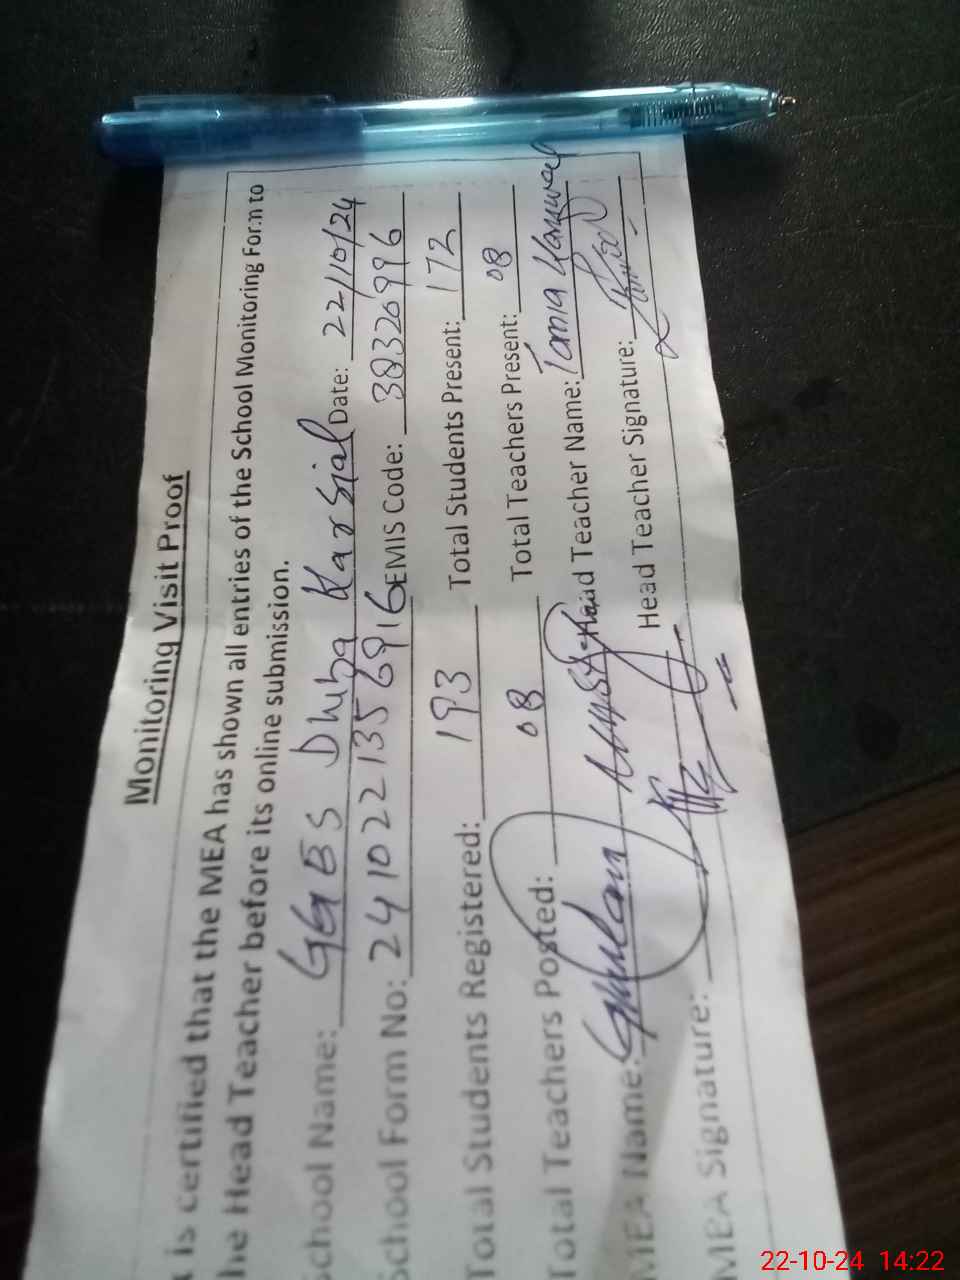 Monitoring Visit Proof
is certified that the MEA has shown all entries of the School Monitoring Form to
he Head Teacher before its online submission.
chool Name: GGES Dhuba Harsial Date: 22/10/24
School Form No: 2410221356916 EMIS Code: 38320996
Total Students Registered: 193 Total Students Present: 172
Total Teachers Posted: 08 Total Teachers Present: 08
MEA Name: Ghulam Head Teacher Name: Tamia Kanwal
MEA Signature: Head Teacher Signature:
22-10-24 14:22